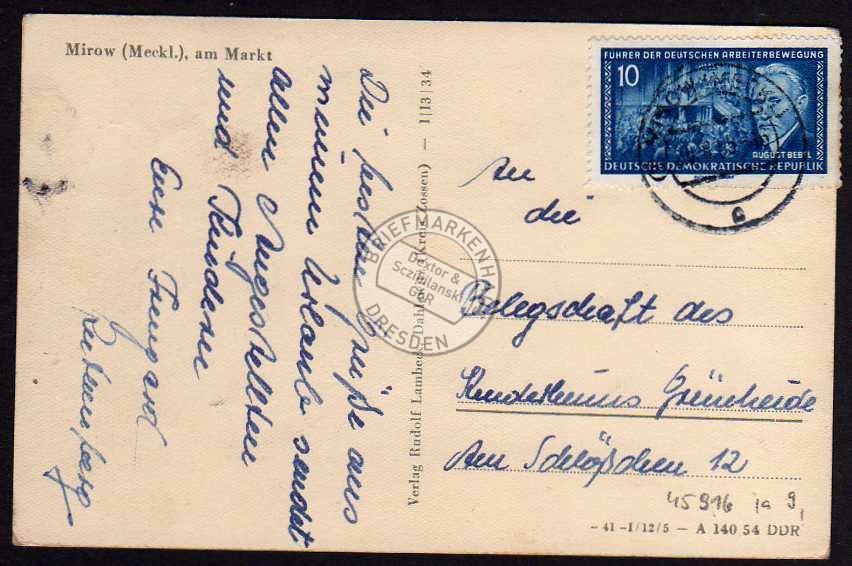 Mirow (Meckl.), am Markt
Die besten Grüße aus
meinem Urlaub sendet
allen Angestellten
und Kindern
Eure Irmgard
Verlag Rudolf Lambeck, Dahlewitz (Kreis Zossen) — 1|13|34
FÜHRER DER DEUTSCHEN ARBEITERBEWEGUNG
10
AUGUST BEBEL
DEUTSCHE DEMOKRATISCHE REPUBLIK
c
An
die
Belegschaft des
Kinderheims Grünheide
Am Schlößchen 12
45916 ia 9,
- 41 -I/12/5 — A 140 54 DDR
BRIEFMARKENH
Dextor &
Sczibilanski
GbR
DRESDEN